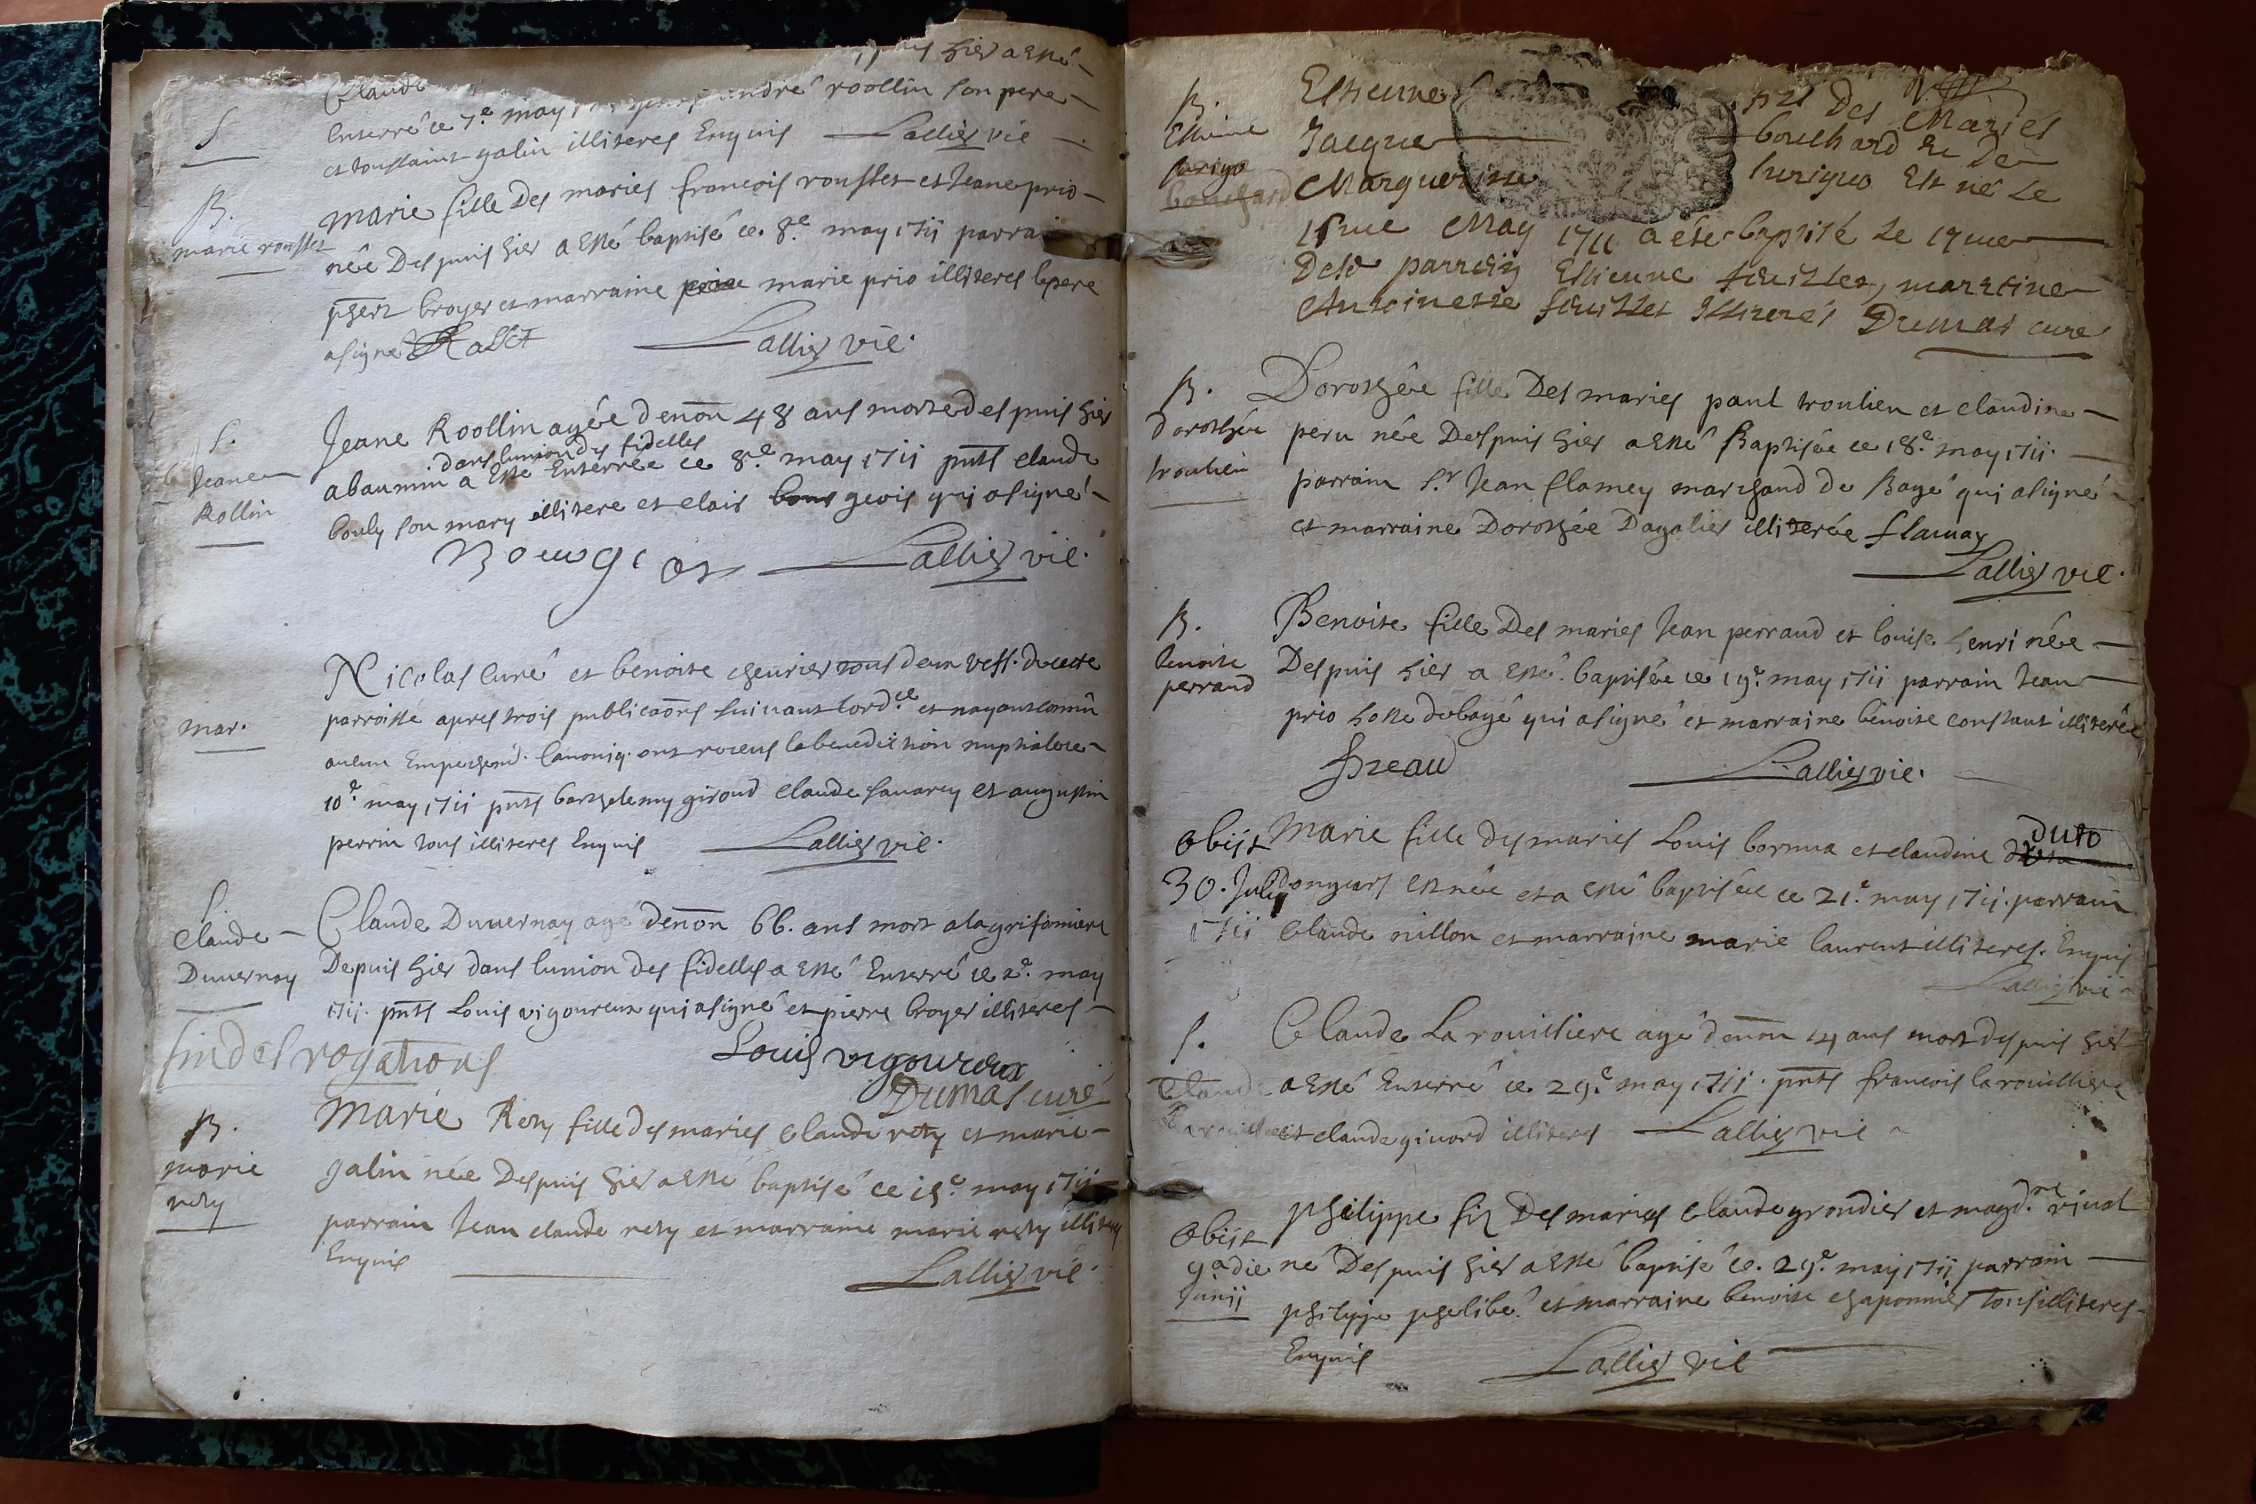 Claude
hier a esté
Enterré ce 7.e may andré roollin son pere
S.
et toussaint galin illiteres Enquis Lallier vic
B.
marie rousset
marie fille Des maries francois rousset et Jeane prio
née Despuis hier a esté baptisé ce 8.e may 1711 parrain
broyer et marraine marie prio illiteres le pere
a signé Lallier vic.
S.
Jeane
Rollin
Jeane Roollin agée denōn 48 ans morte despuis hier
dans lunion des fidelles
abaumin a Esté Enterrée ce 8.e may 1711 pnts claude
bouly son mary illitere et clair bour geois qui a signé
Bourgeois Lallier vic.
mar.
Nicolas Curé et benoite cheurier tous deux de cette
parroisse apres trois publicaōns suivant lord.ce et nayant connû
aucun Empechemt. Canoniq. ont receus la benediction nuptiale ce
10.e may 1711 pnts barthelemy giroud Claude sauarey et augustin
perrin tous illiteres Enquis Lallier vic.
Claude
Duuernay
Claude Duuernay agé denōn 66. ans mort a la grifoniere
Depuis hier dans lunion des fidelles a esté Enterré ce 2.e may
1711. pnts Louis vigoureux qui a signé et pierre broyer illiteres
fin des rogations Louis vigoureux
Dumas curé
B.
marie
rety
Marie Rety fille des maries Claude rety et marie
galin née Despuis hier a esté baptisé ce 15.e may 1711
parrain Jean claude rety et marraine marie rety illiteres
Enquis Lallier vic.
B.
Estiene
bouchard
Estienne fils Des Maries
Jacque bouchard Et De
Margueritte Est né Le
may 1711 a été baptisé Le 17me
Parrein Estienne feuillet, marreine
Antoinette feuillet Illiterés Dumas curé
B.
dorothée
troulieu
Dorothée fille Des maries paul troulieu et claudine
peru née Despuis hier a esté Baptisée ce 18.e may 1711.
parrain S.r Jean flamey marchand de Bagé qui a signé
et marraine Dorothée Dagalier illiterée flamay
Lallier vic.
B.
benoite
perraud
Benoite fille Des maries Jean perraud et louise henri née
Despuis hier a esté baptisée ce 19.e may 1711 parrain Jean
prio hoste de bagé qui a signé et marraine benoite constant illiterée
Lallier vic.
Obiit
30. Julij
1711
Marie fille des maries Louis bornua et claudine duto
est née et a esté baptisée ce 21.e may 1711. parrain
Claude nillon et marraine marie laurent illiteres. Enquis
Lallier vic
S.
Claude
Larouilliere
Claude La rouilliere agé denōn 14 ans mort despuis hier
a esté Enterré ce 29.e may 1711. pnts francois la rouilliere
et claude giuord illiteres Lallier vic
Obiit
9.a die
Junij
philippe fils Des maries Claude grondier et magd.ne vinat
né Despuis hier a esté baptisé ce. 29.e may 1711 parrain
philippe phelibé. et marraine benoite chaponnier Tous illiteres
Enquis Lallier vic